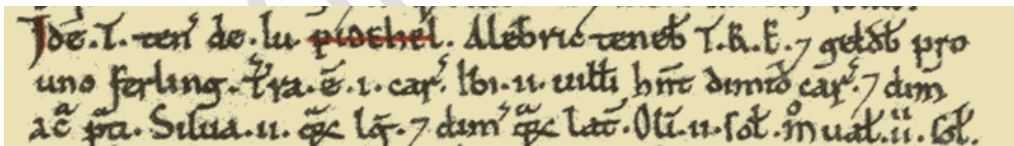 Idē.T. ten̄ de.lu. piochel. Alebric teneb̄ T.R.E.⁊ geldb̄ pro
uno ferling. T'ra.ē.ı.car̄. Ibi.ıı.uilli hn̄t dimid̄ car̄.⁊ dim̄
ac̄ p̄ti. Silua.ıı. q̄ꝫ lḡ.⁊ dim̄ q̄ꝫ lat̄. Oli.ıı.sol̄. m̊ ual̄.ıı. sol̄.